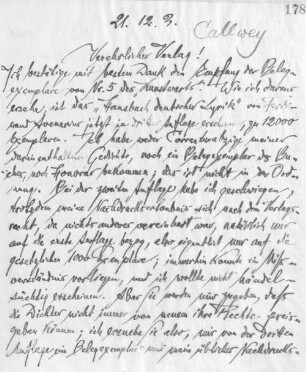 178
21. 12. 3.
Callwey
Verehrlicher Verlag!
Ich bestätige mit bestem Dank den Empfang der Beleg-
exemplare von Nr. 5 des Kunstwarts. Wie ich daraus
ersehe, ist das „Hausbuch deutscher Lyrik“ von Ferdi-
nand Avenarius jetzt in dritter Auflage erschienen, zu 12000
Exemplaren. Ich habe weder Correcturabzüge meiner
darin enthaltenen Gedichte, noch ein Belegexemplar des Bu-
ches, noch Honorar bekommen; das ist nicht in der Ord-
nung. Bei der zweiten Auflage habe ich geschwiegen,
trotzdem meine Nachdruckserlaubnis sich nach dem Verlags-
recht, da nichts anderes vereinbart war, natürlich nur
auf die erste Auflage bezog, also eigentlich nur auf die
gesetzlichen 1000 Exemplare; immerhin konnte ein Miß-
verständnis vorliegen, und ich wollte nicht händel-
süchtig erscheinen. Aber Sie werden mir zugeben, daß
die Dichter nicht immer von neuem ihre Rechte preis-
geben können; ich ersuche Sie also, mir von der dritten
Auflage ein Belegexemplar und mein üblicher Nachdrucks-